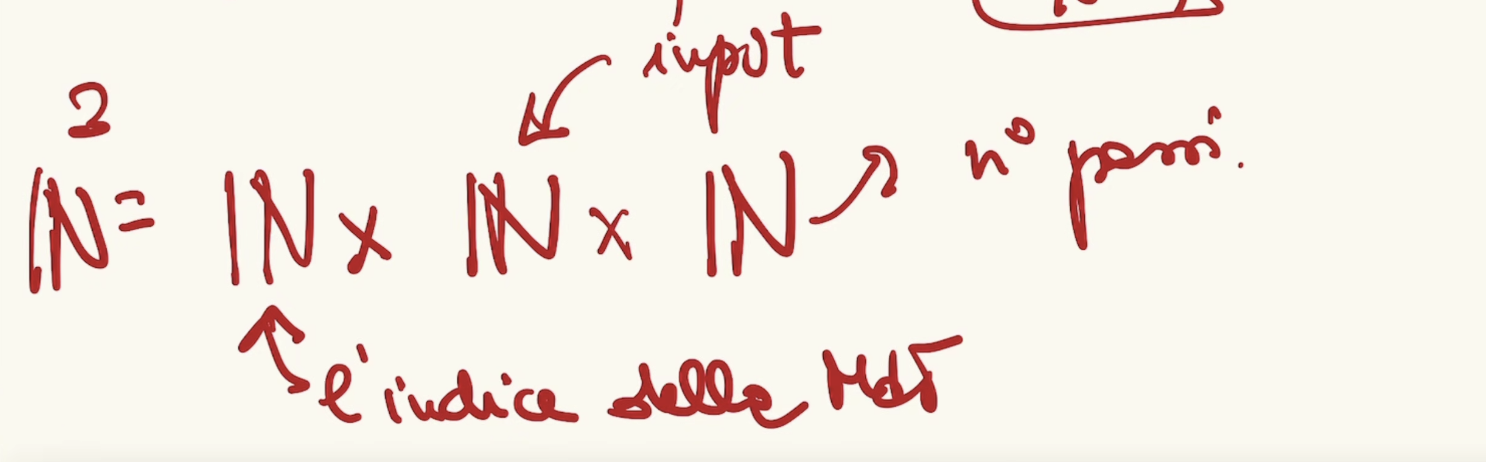 input
ℕ³ = ℕ x ℕ x ℕ n° passi.
l'indice della MdT